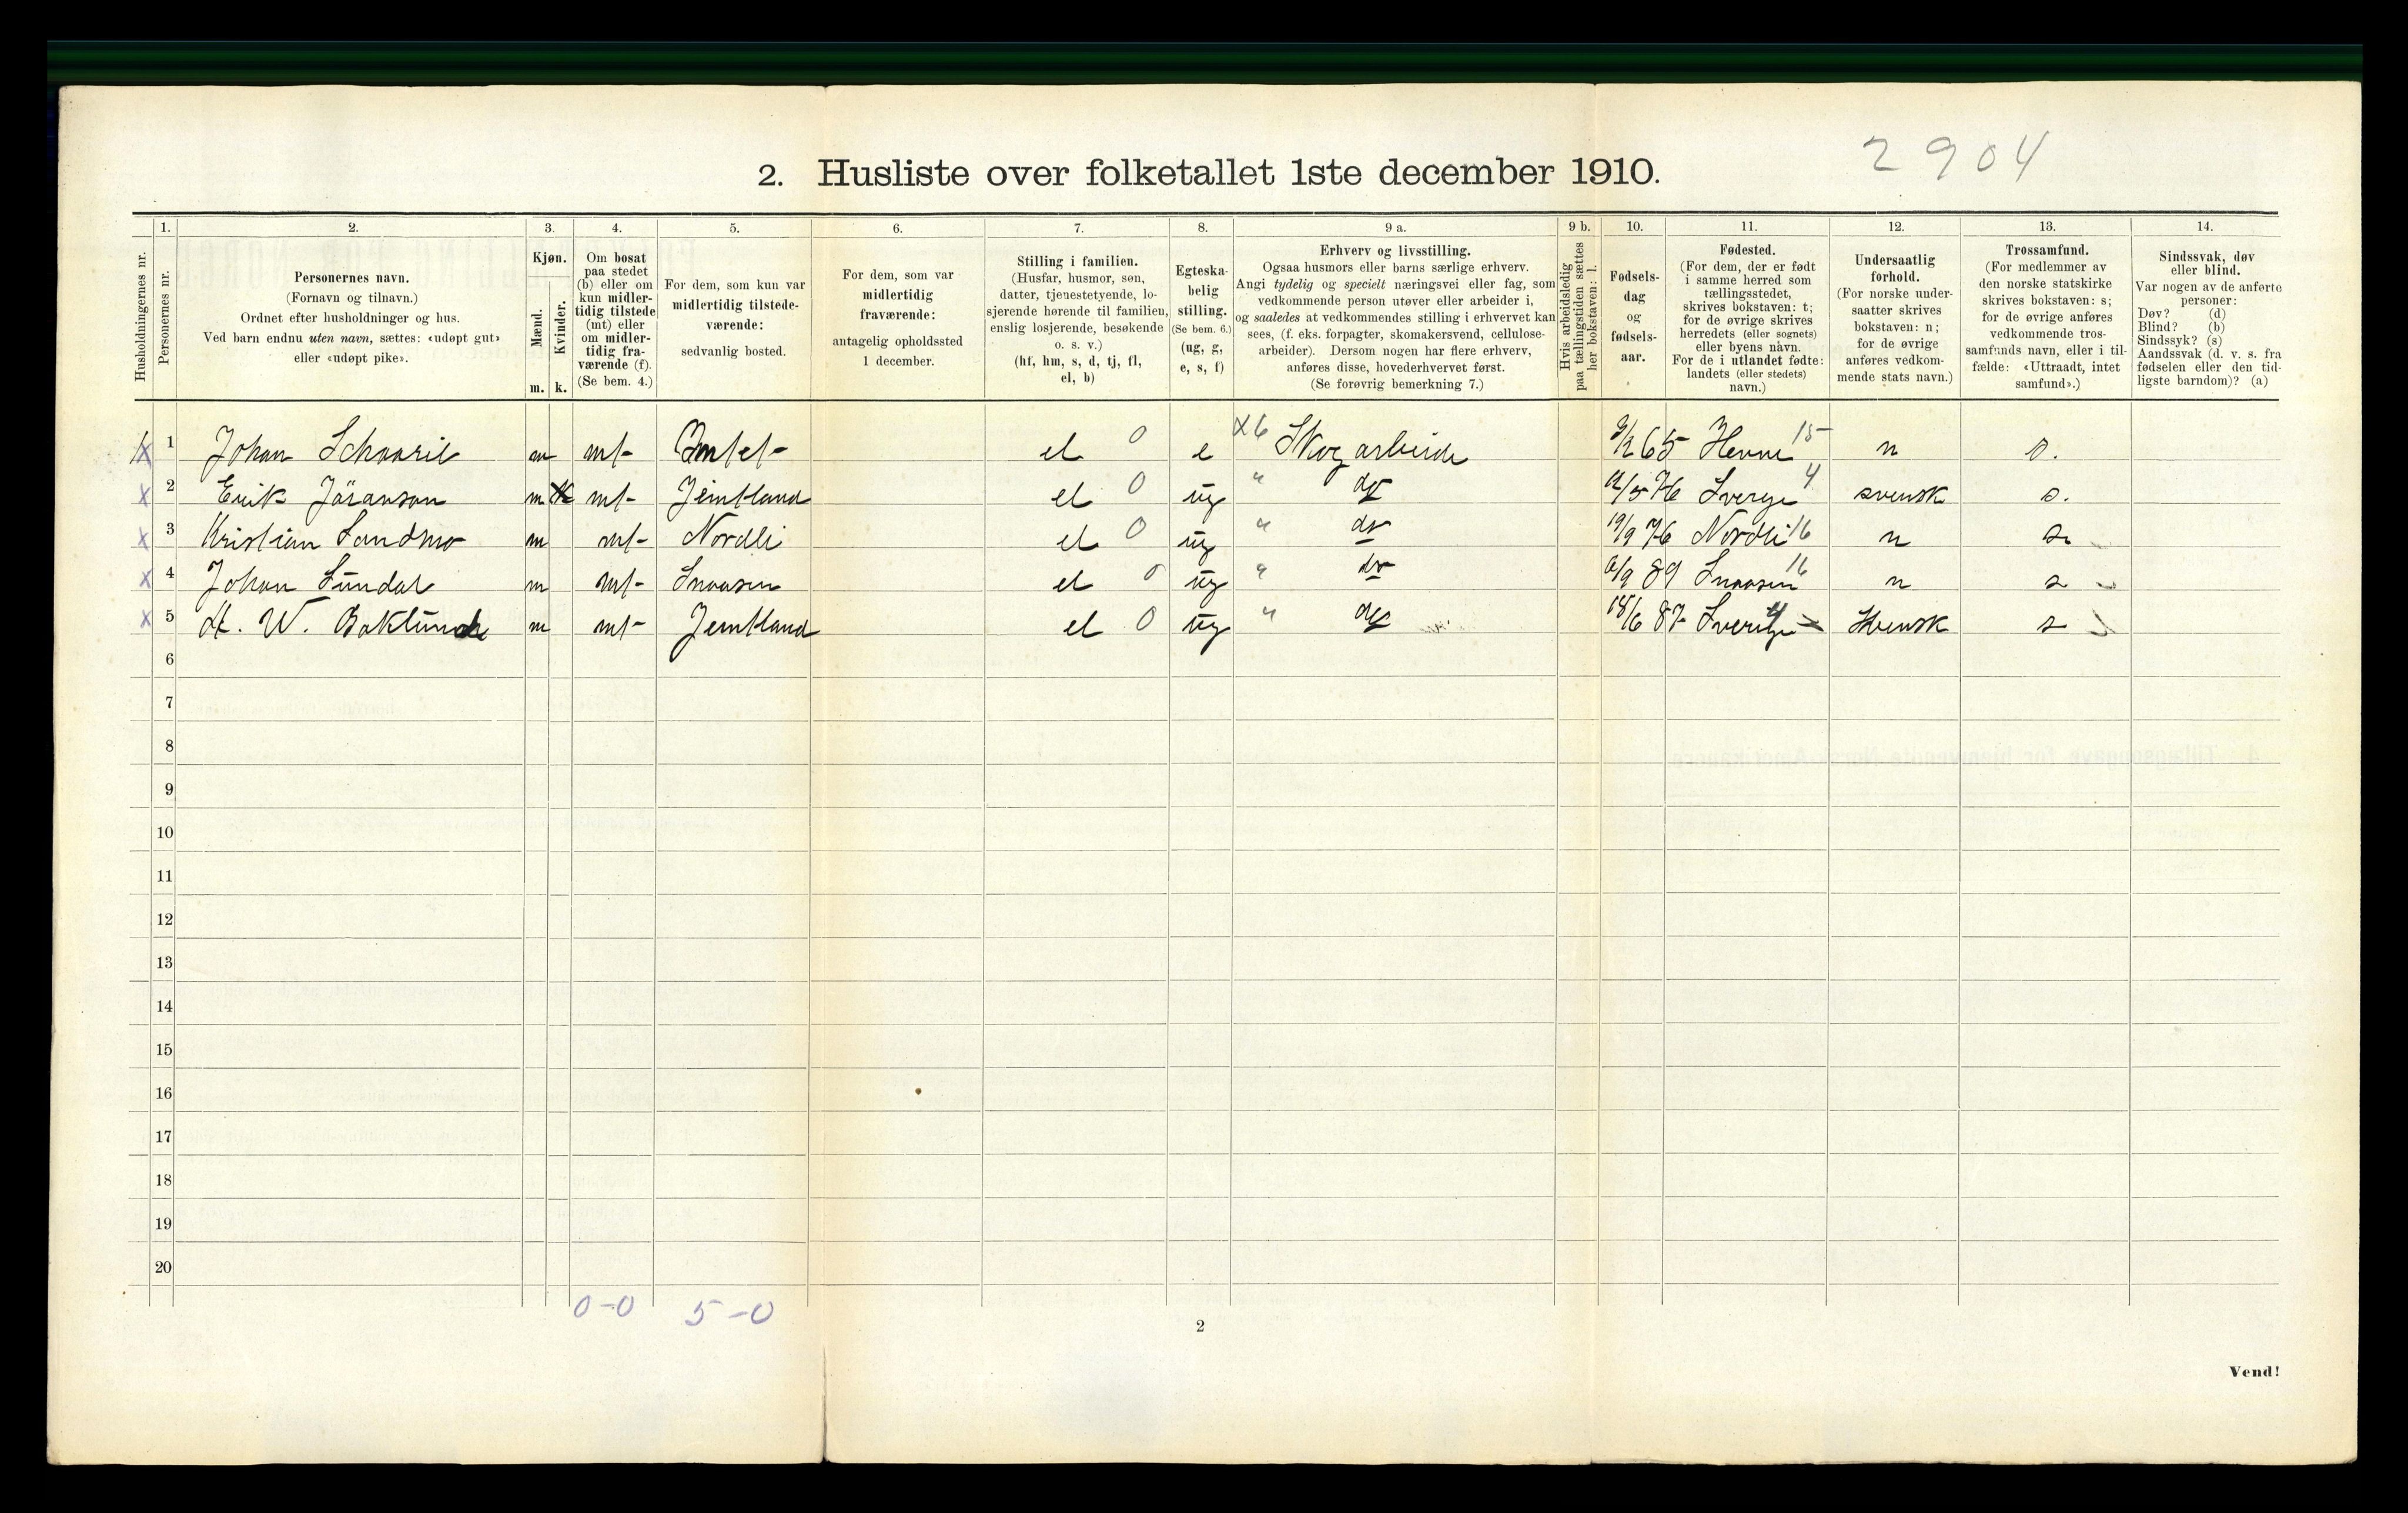 2904
2. Husliste over folketallet 1ste december 1910.
Husholdningernes nr.
1. Personernes nr.
2. Personernes navn.
(Fornavn og tilnavn.)
Ordnet efter husholdninger og hus.
Ved barn endnu uten navn, sættes: «udøpt gut»
eller «udøpt pike».
3. Kjøn.
Mænd. m.
Kvinder. k.
4. Om bosat
paa stedet
(b) eller om
kun midler-
tidig tilstede
(mt) eller
om midler-
tidig fra-
værende (f).
(Se bem. 4.)
5. For dem, som kun var
midlertidig tilstede-
værende:
sedvanlig bosted.
6. For dem, som var
midlertidig
fraværende:
antagelig opholdssted
1 december.
7. Stilling i familien.
(Husfar, husmor, søn,
datter, tjenestetyende, lo-
sjerende hørende til familien,
enslig losjerende, besøkende
o. s. v.)
(hf, hm, s, d, tj, fl,
el, b)
8. Egteska-
belig
stilling.
(Se bem. 6.)
(ug, g,
e, s, f)
9 a. Erhverv og livsstilling.
Ogsaa husmors eller barns særlige erhverv.
Angi tydelig og specielt næringsvei eller fag, som
vedkommende person utøver eller arbeider i,
og saaledes at vedkommendes stilling i erhvervet kan
sees, (f. eks. forpagter, skomakersvend, cellulose-
arbeider). Dersom nogen har flere erhverv,
anføres disse, hovederhvervet først.
(Se forøvrig bemerkning 7.)
9 b. Hvis arbeidsledig
paa tællingstiden sættes
her bokstaven: l.
10. Fødsels-
dag
og
fødsels-
aar.
11. Fødested.
(For dem, der er født
i samme herred som
tællingsstedet,
skrives bokstaven: t;
for de øvrige skrives
herredets (eller sognets)
eller byens navn.
For de i utlandet fødte:
landets (eller stedets)
navn.)
12. Undersaatlig
forhold.
(For norske under-
saatter skrives
bokstaven: n;
for de øvrige
anføres vedkom-
mende stats navn.)
13. Trossamfund.
(For medlemmer av
den norske statskirke
skrives bokstaven: s;
for de øvrige anføres
vedkommende tros-
samfunds navn, eller i til-
fælde: «Uttraadt, intet
samfund».)
14. Sindssvak, døv
eller blind.
Var nogen av de anførte
personer:
Døv? (d)
Blind? (b)
Sindssyk? (s)
Aandssvak (d. v. s. fra
fødselen eller den tid-
ligste barndom)? (a)
x 1 Johan m mt- el 0 e Skogarbeide 65 Hevne 15 n s.
x 2 Erik Jöranson m mt- Jemtland el 0 ug " do 76 Sverge 4 svensk s.
x 3 Kristian Sandmo m mt- Nordli el 0 ug " do 19/9 76 Nordli 16 n s.
x 4 Johan Sundal m mt- Snaasen el 0 ug " do 6/9 89 Snaasen 16 n s
x 5 H. W. Baklund m mt- Jemtland el 0 ug " do 18/6 87 Sverige 4 Svensk s
6
7
8
9
10
11
12
13
14
15
16
17
18
19
20
0-0 5-0
2
Vend!